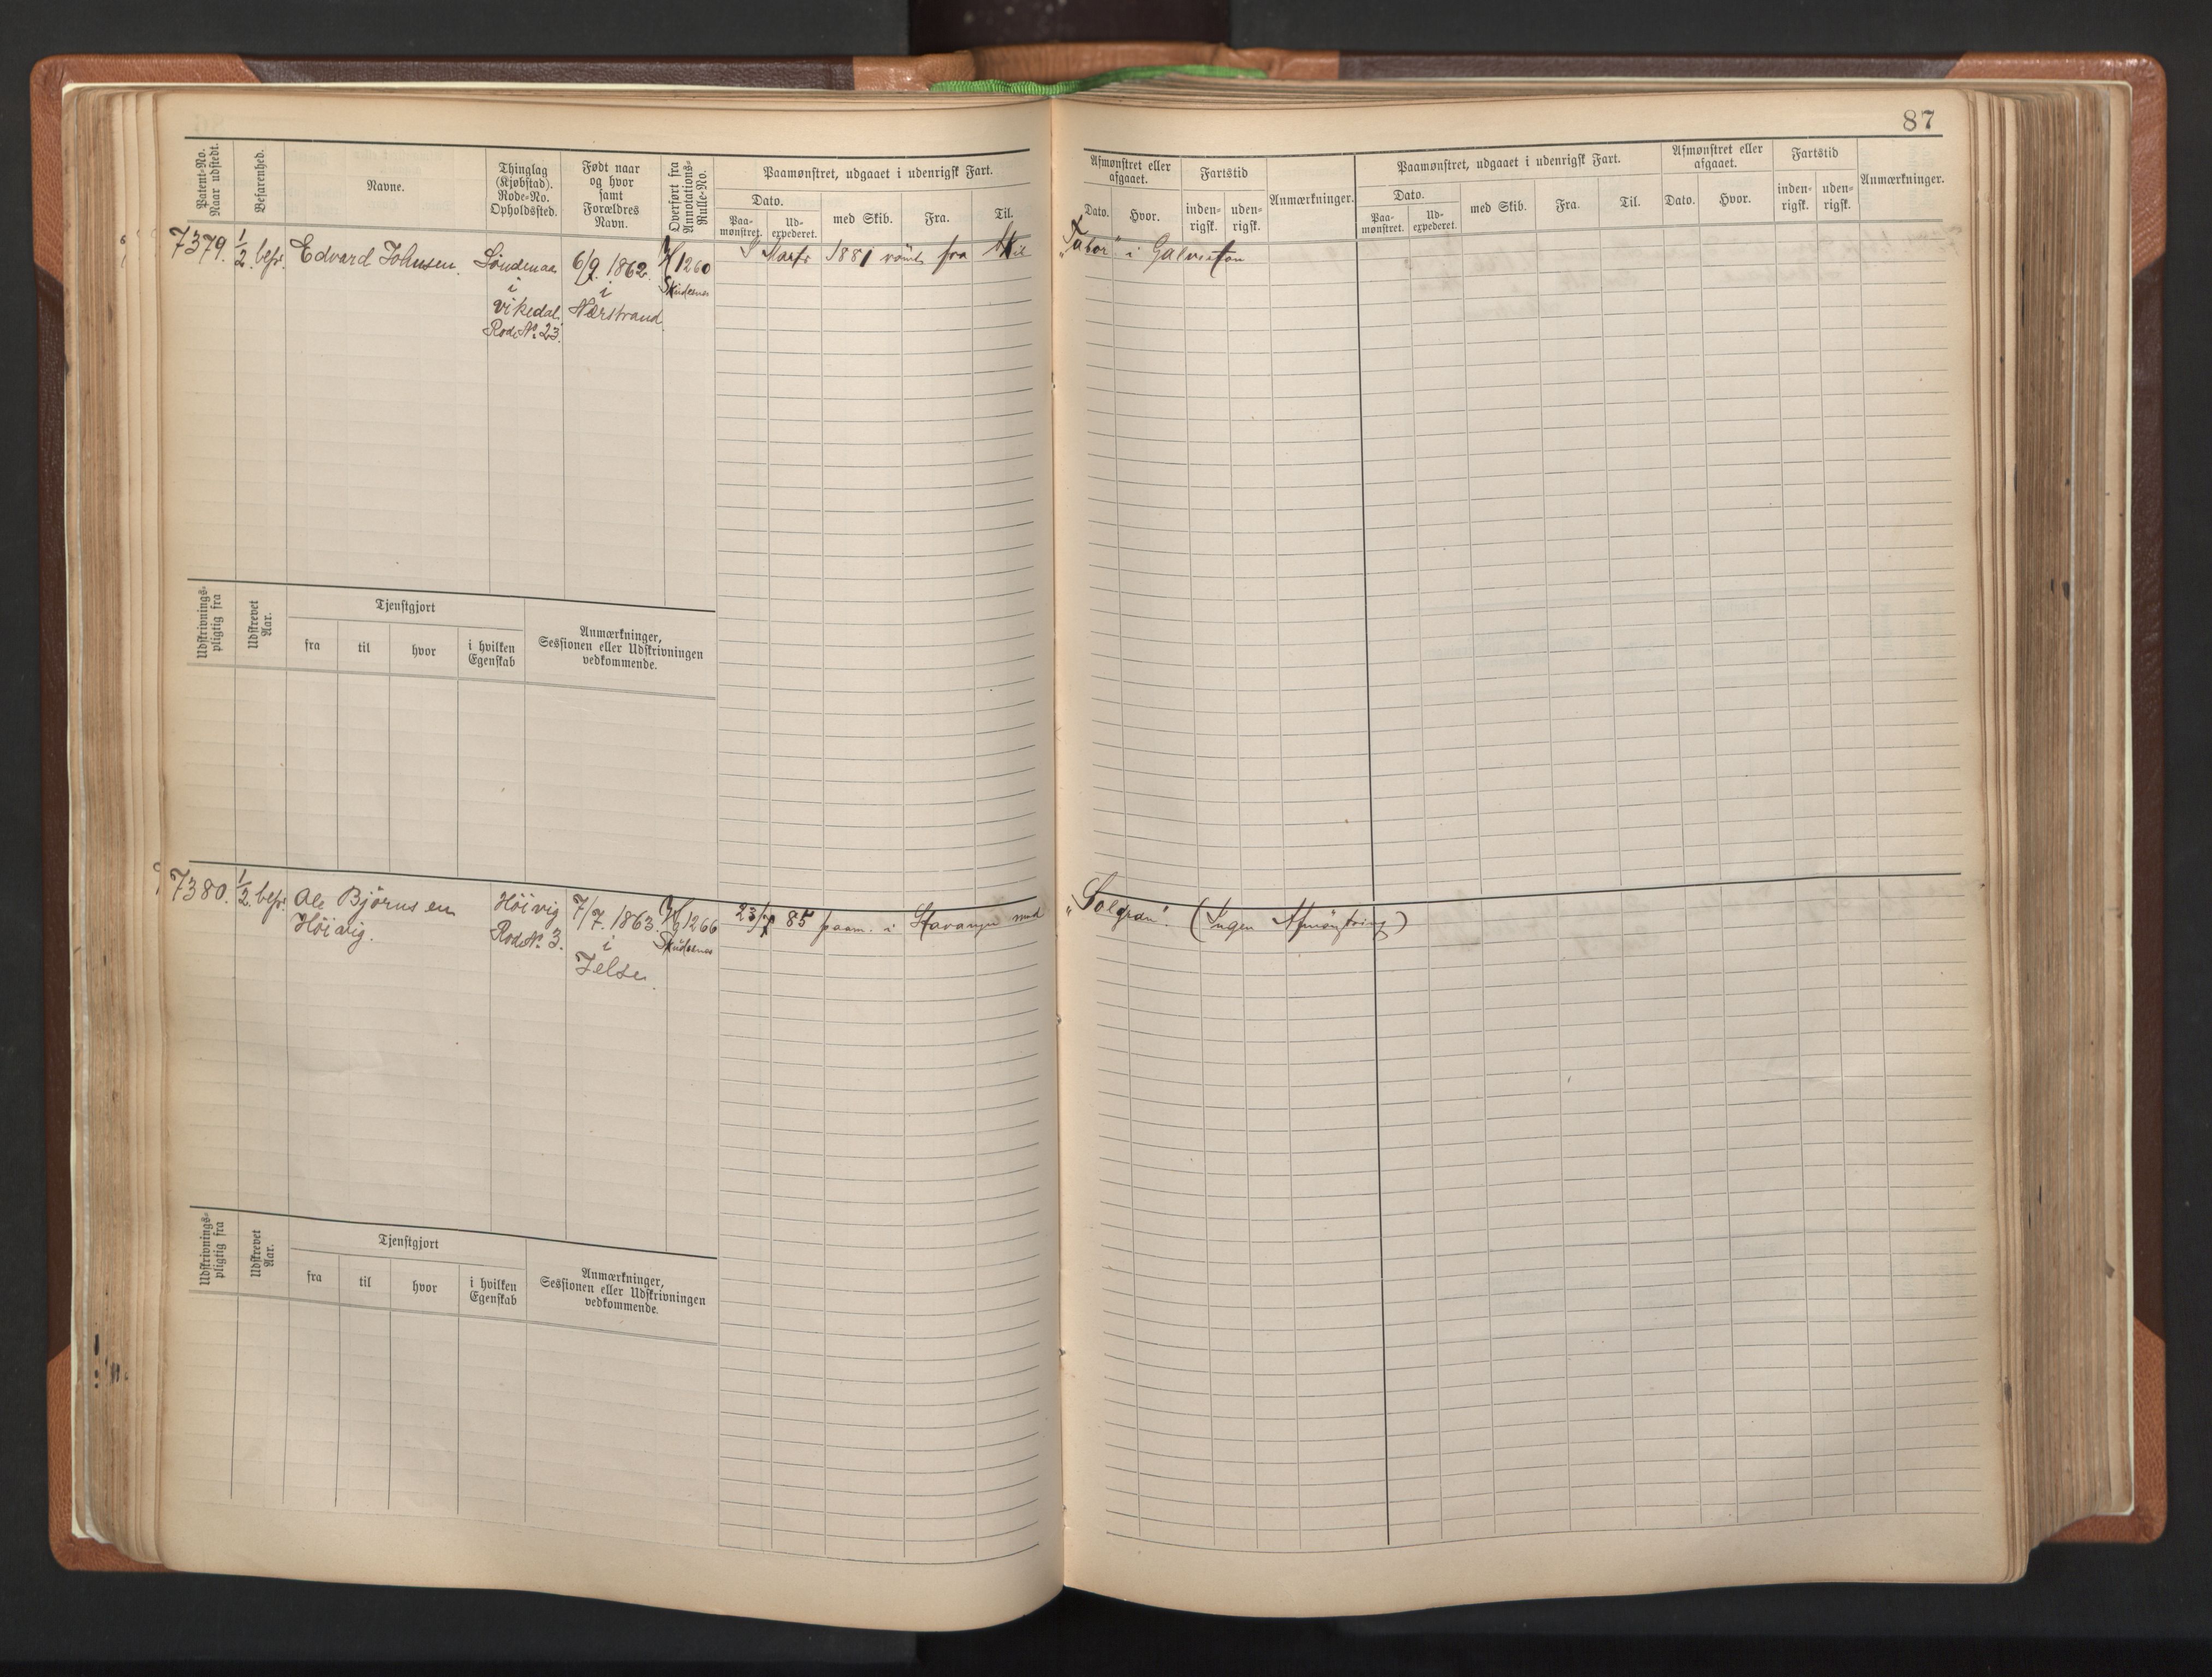 87
Patent-No.
Naar udstedt.
Befarenhed.
Navne.
Thinglag
(Kjøbstad).
Rode-No.
Opholdssted.
Født naar
og hvor
samt
Forældres
Navn.
Overført fra
Annotations-
Rulle-No.
Paamønstret, udgaaet i udenrigsk Fart.
Dato.
Paa-
mønstret.
Ud-
expederet.
med Skib.
Fra.
Til.
Afmønstret eller
afgaaet.
Dato.
Hvor.
Fartstid
inden-
rigsk.
uden-
rigsk.
Anmærkninger.
Paamønstret, udgaaet i udenrigsk Fart.
Dato.
Paa-
mønstret.
Ud-
expederet.
med Skib.
Fra.
Til.
Afmønstret eller
afgaaet.
Dato.
Hvor.
Fartstid
inden-
rigsk.
uden-
rigsk.
Anmærkninger.
7379.
1/2 befr.
Edvard Johnsen.
Söndenaa
i
Vikedal.
Rode No. 23.
6/9. 1862.
i
Nærstrand.
1260
Skudesnes
I Marts 1881 römt fra Skib
„Tabor" i Galveston
Udskrivnings-
pligtig fra
Udskrevet
Aar.
Tjenstgjort
fra
til
hvor
i hvilken
Egenskab
Anmærkninger,
Sessionen eller Udskrivningen
vedkommende.
7380.
1/2 befr.
Ole Björnsen
Höivig.
Höivig
Rode No. 3.
7/7. 1863.
i
Jelse.
1266
Skudesnes
85 paam. i Stavanger med
(Ingen Afmønstring)
Udskrivnings-
pligtig fra
Udskrevet
Aar.
Tjenstgjort
fra
til
hvor
i hvilken
Egenskab
Anmærkninger,
Sessionen eller Udskrivningen
vedkommende.